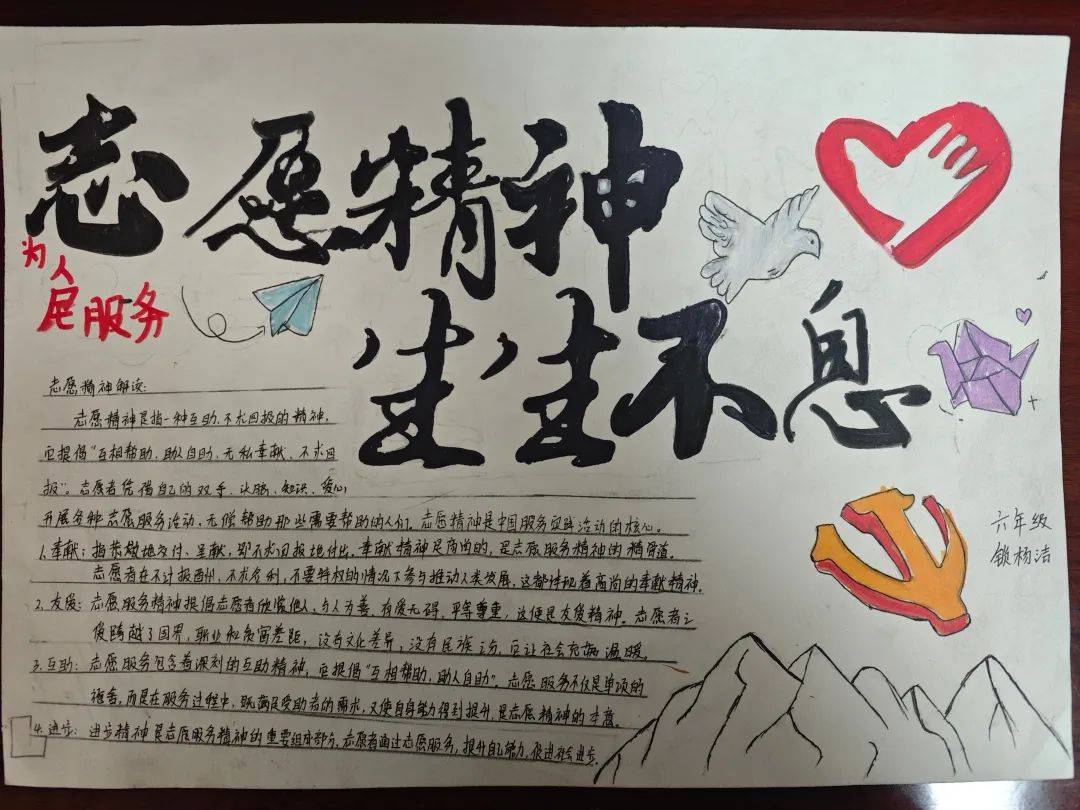 志愿精神
生生不息
为人
民服务
志愿精神解读:
志愿精神是指一种互助、不求回报的精神,
它提倡“互相帮助、助人自助、无私奉献、不求回
报”。志愿者凭借自己的双手、头脑、知识、爱心
开展各种志愿服务活动,无偿帮助那些需要帮助的人们。志愿精神是中国服务实践活动的核心。
1.奉献:指恭敬地交付、呈献,即不求回报地付出。奉献精神是高尚的,是志愿服务精神的精髓。
志愿者在不计报酬、不求名利,不要特权的情况下参与推动人类发展,这都体现着高尚的奉献精神。
2.友爱:志愿服务精神提倡志愿者欣赏他人、与人为善、有爱无碍、平等尊重,这便是友爱精神。志愿者之
爱跨越了国界,职业和贫富差距,没有文化差异,没有民族之分,它让社会充满温暖。
3.互助:志愿服务包含着深刻的互助精神,它提倡“互相帮助、助人自助”。志愿服务不仅是单项的
施舍,而是在服务过程中,既满足受助者的需求,又使自身能力得到提升,是志愿精神的本意。
4.进步:进步精神是志愿服务精神的重要组成部分,志愿者通过志愿服务,提升自己能力,促进社会进步。
六年级
锁杨洁